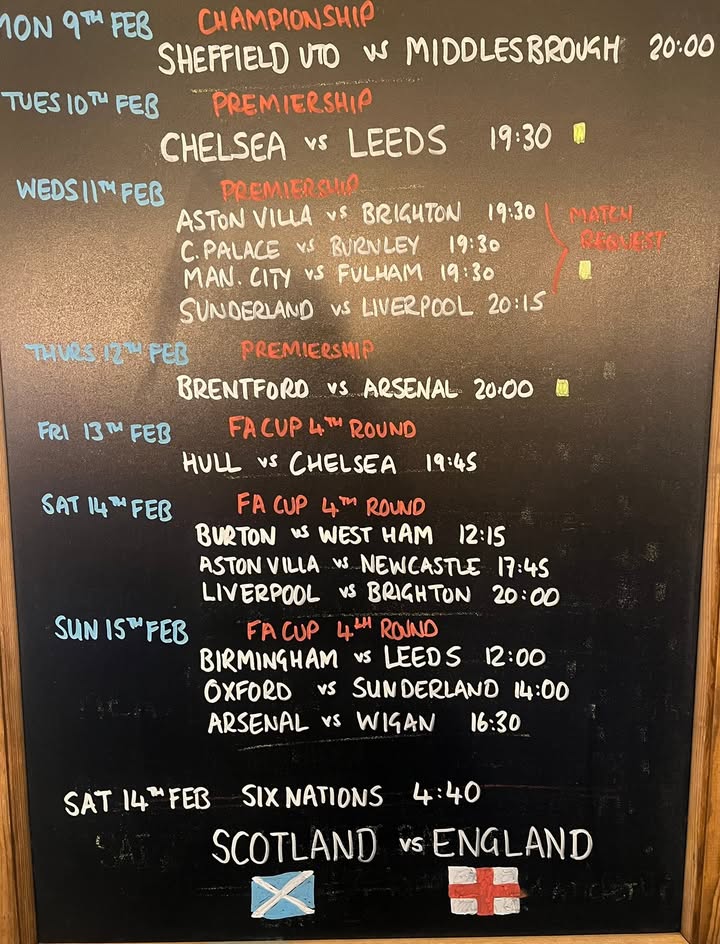 MON 9TH FEB CHAMPIONSHIP
SHEFFIELD UTD vs MIDDLESBROUGH 20:00
TUES 10TH FEB PREMIERSHIP
CHELSEA vs LEEDS 19:30
WEDS 11TH FEB PREMIERSHIP
ASTON VILLA vs BRIGHTON 19:30
C. PALACE vs BURNLEY 19:30
MAN. CITY vs FULHAM 19:30
SUNDERLAND vs LIVERPOOL 20:15
MATCH
REQUEST
THURS 12TH FEB PREMIERSHIP
BRENTFORD vs ARSENAL 20:00
FRI 13TH FEB FA CUP 4TH ROUND
HULL vs CHELSEA 19:45
SAT 14TH FEB FA CUP 4TH ROUND
BURTON vs WEST HAM 12:15
ASTON VILLA vs NEWCASTLE 17:45
LIVERPOOL vs BRIGHTON 20:00
SUN 15TH FEB FA CUP 4TH ROUND
BIRMINGHAM vs LEEDS 12:00
OXFORD vs SUNDERLAND 14:00
ARSENAL vs WIGAN 16:30
SAT 14TH FEB SIX NATIONS 4:40
SCOTLAND vs ENGLAND